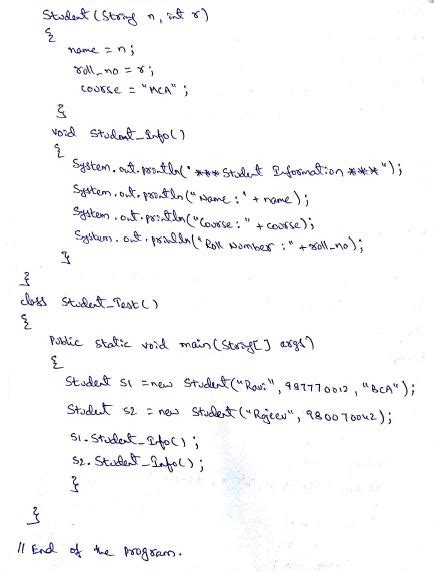 Student (String n, int r)
{
name = n;
roll_no = r;
course = "MCA";
}
void Student_Info()
{
System.out.println("*** Student Information ***");
System.out.println("Name :" + name);
System.out.println("Course :" + course);
System.out.println("Roll Number :" + roll_no);
}
}
class Student_Test()
{
Public static void main(String[] args)
{
Student S1 = new Student("Ravi", 987770012, "BCA");
Student S2 = new Student("Rajeev", 980070042);
S1.Student_Info();
S2.Student_Info();
}
}
// End of the Program.